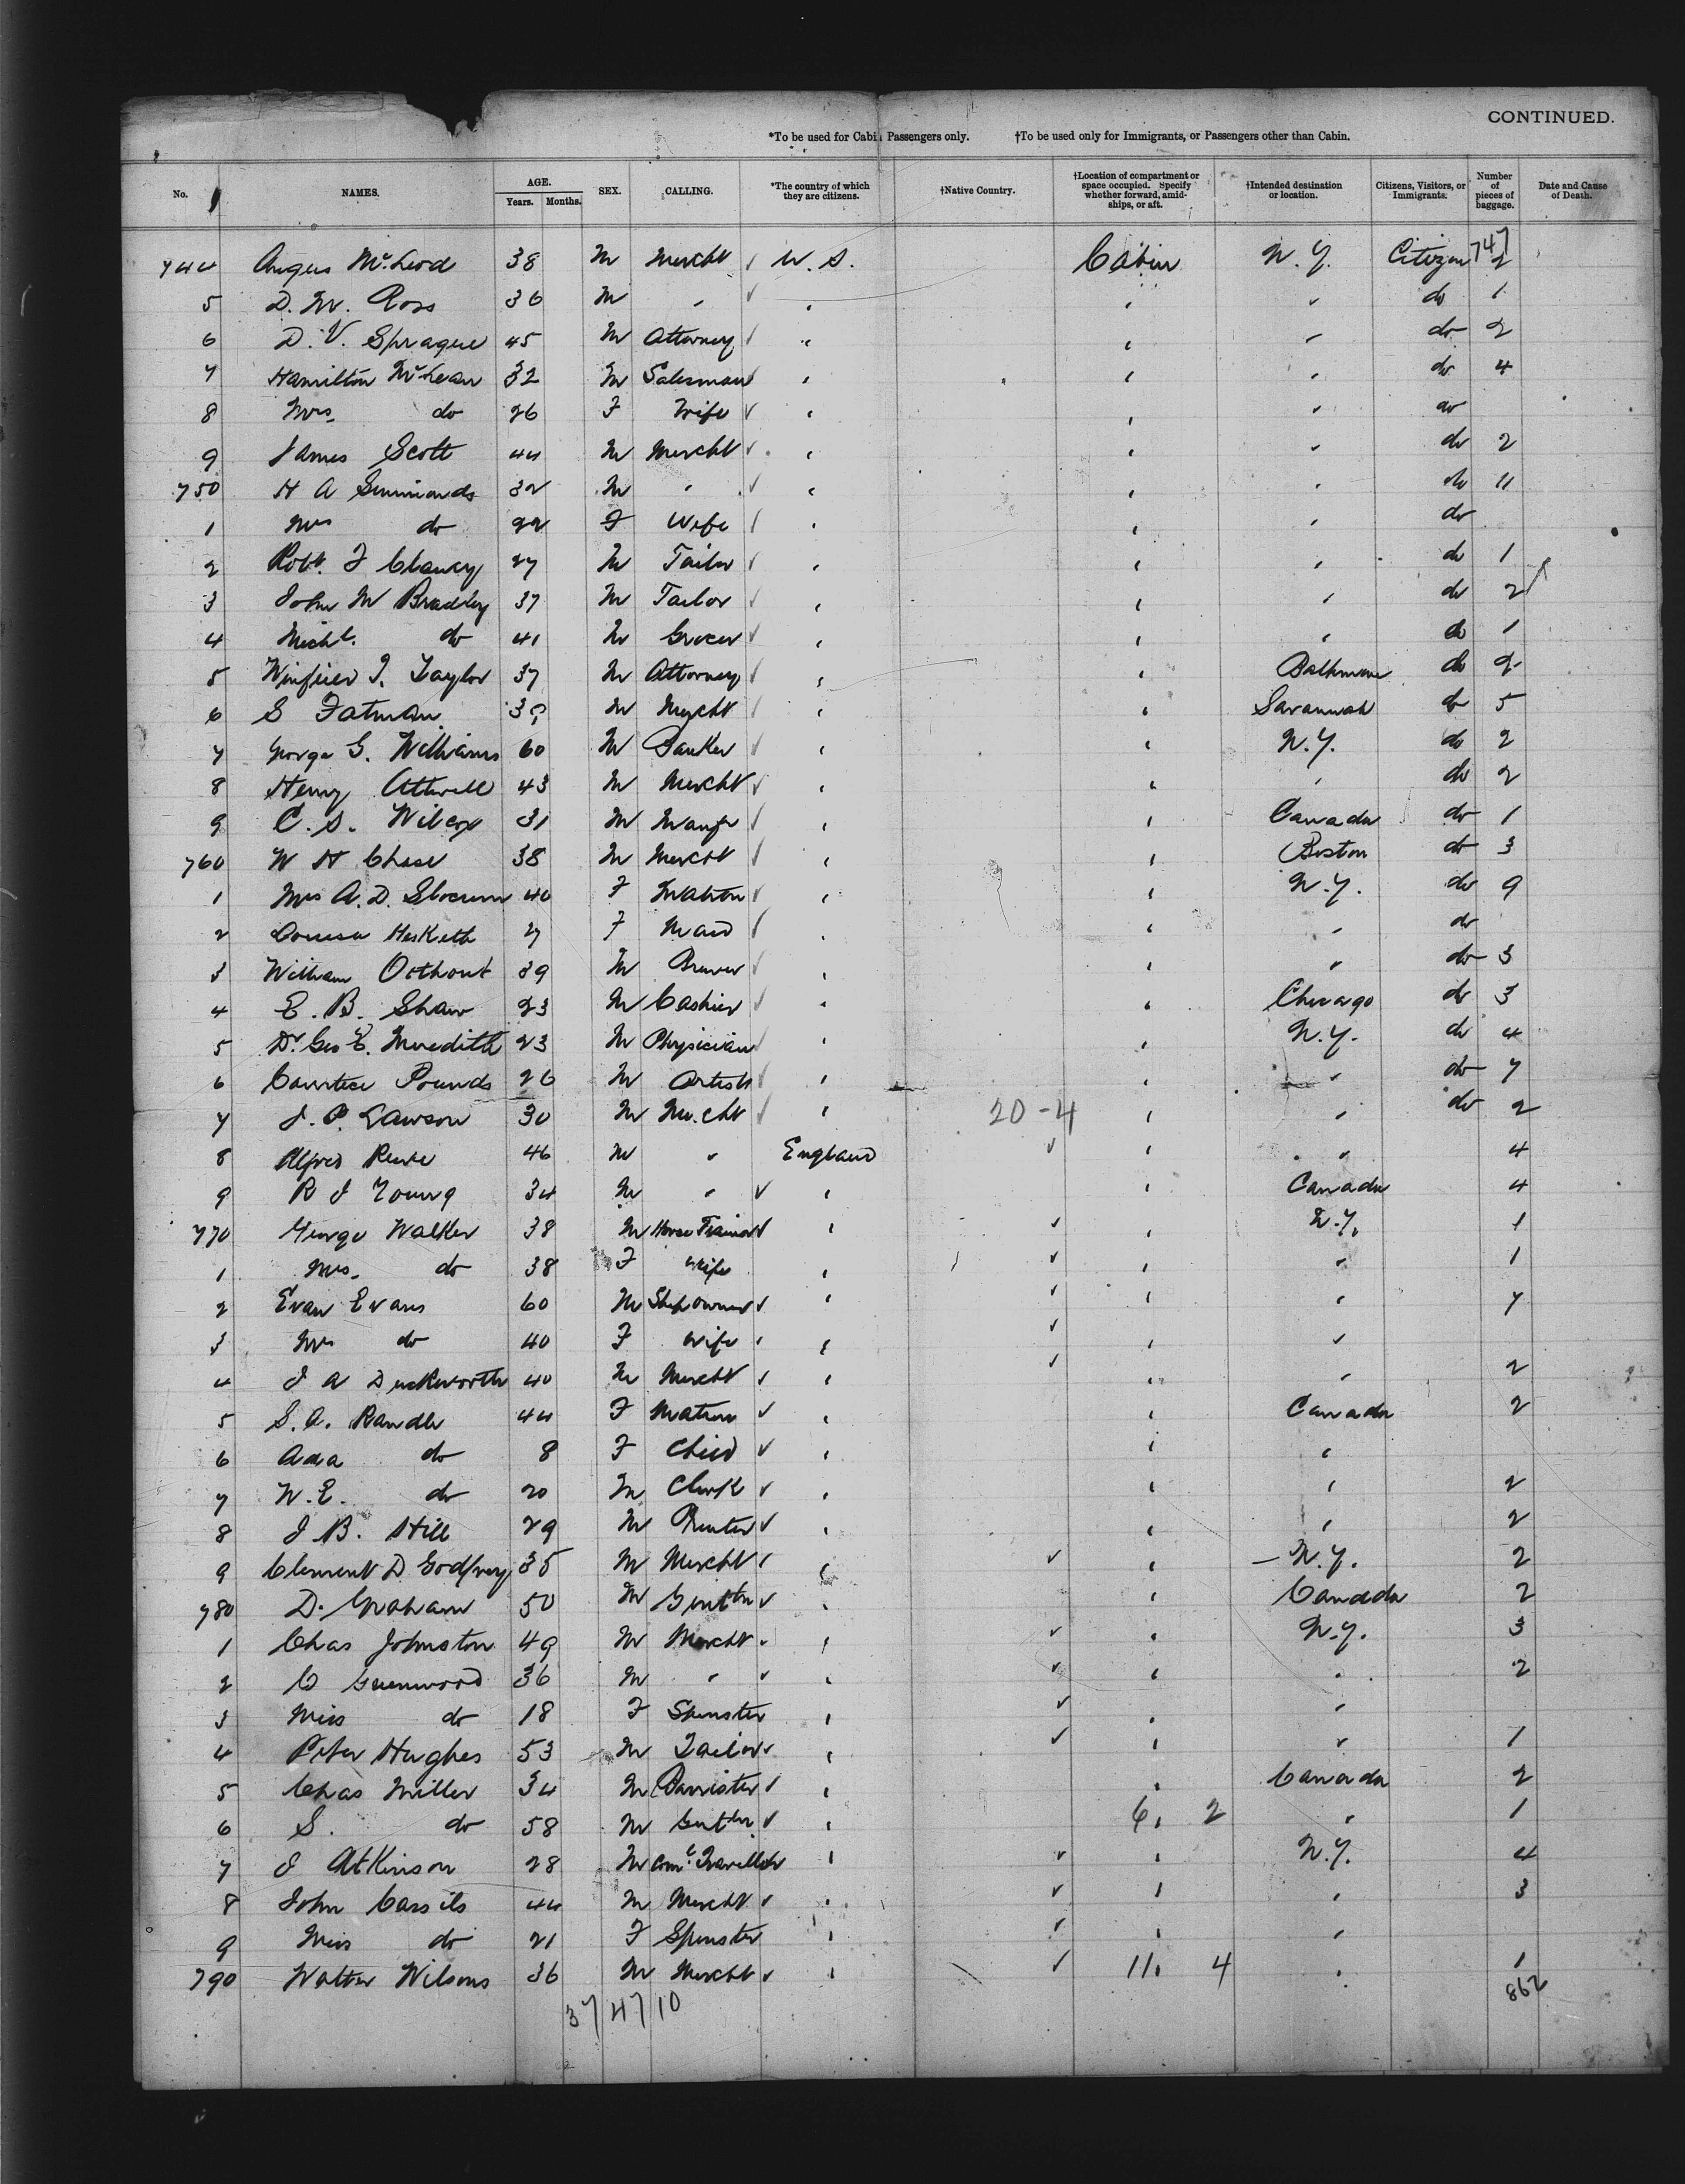 CONTINUED.
*To be used for Cabin Passengers only. †To be used only for Immigrants, or Passengers other than Cabin.
No. NAMES. AGE. Years. Months. SEX. CALLING. *The country of which they are citizens. †Native Country. †Location of compartment or space occupied. Specify whether forward, amidships, or aft. †Intended destination or location. Citizens, Visitors, or Immigrants. Number of pieces of baggage. Date and Cause of Death.
747
744 Angus McLeod 38 M Mercht U.S. Cabin N.Y. Citizen 2
5 D. W. Ross 36 M " " " " do 1
6 D. V. Sprague 45 M Attorney " " " do 2
7 Hamilton McLean 32 M Salesman " " " do 4
8 Mrs do 26 F Wife " " " do
9 James Scott 44 M Mercht " " " do 2
750 H A Simmonds 32 M " " " " do 11
1 Mrs do 22 F Wife " " " do
2 Robt. F Clancy 27 M Tailor " " " do 1
3 John M Bradley 37 M Tailor " " " do 2
4 Michl. do 41 M Grocer " " " do 1
5 J. Taylor 37 M Attorney " " Baltimore do 2
6 S Fatman M Mercht " " Savannah do 5
7 George G. Williams 60 M Banker " " N.Y. do 2
8 Henry Attwell 43 M Mercht " " " do 2
9 C. S. Wilcox 31 M Manfr " " Canada do 1
760 W H Chase 38 M Mercht " " Boston do 3
1 Mrs A. D. Slocum 40 F Matron " " N.Y. do 9
2 Louisa Hesketh 27 F Maid " " " do
3 William Oothout 39 M Brewer " " " do 3
4 E. B. Shaw 23 M Cashier " " Chicago do 3
5 Dr. Geo E. Meredith 23 M Physician " " N.Y. do 4
6 Courtice Pounds 26 M Artist " " " do 7
7 J. P. Lawson 30 M Mercht " 20-4 " " do 2
8 Alfred 46 M " England " " 4
9 R J Young 34 M " " " Canada 4
770 George Walker 38 M Horse Trainer " " N.Y. 1
1 Mrs. do 38 F Wife " " " 1
2 Evan Evans 60 M Ship owner " " " 7
3 Mrs do 40 F Wife " " "
4 J A Duckworth 40 M Mercht " " " 2
5 S. A. Randle 44 F Matron " " Canada 2
6 Ada do 8 F Child " " "
7 W. E. do 20 M Clerk " " " 2
8 J B. Hill 29 M Printer " " " 2
9 Clement D Godfrey 35 M Mercht " " N.Y. 2
780 D. Graham 50 M Gentln " " Canada 2
1 Chas Johnston 49 M Mercht " " N.Y. 3
2 Greenwood 36 M " " " " 2
3 Miss do 18 F Spinster " " "
4 Peter Hughes 53 M Tailor " " " 1
5 Chas Miller 34 M Barrister " " Canada 2
6 S. do 58 M Gentln " 6 " 2 " 1
7 J Atkinson 28 M Coml. Traveller " " N.Y. 4
8 John Cassils 44 M Mercht " " " 3
9 Miss do 21 F Spinster " " "
790 Walter Wilsons 36 M Mercht " 11 " 4 " 1
37 47 10 862